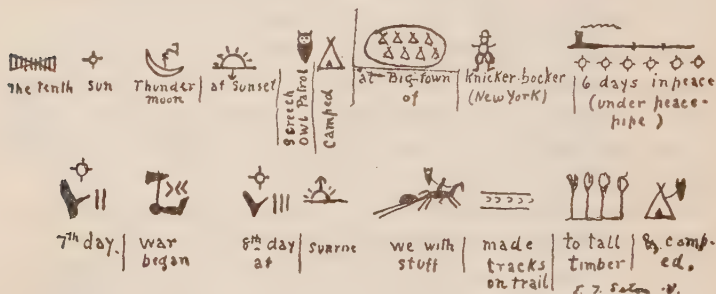 The Tenth Sun Thunder moon at Sunset Screech Owl Patrol Camped at Big town of Knicker-bocker (New York) 6 days in peace (under peace-pipe)
7th day war began 8th day at Sunrise we with stuff made tracks on trail to tall timber & camp-ed.
E. T. Seton